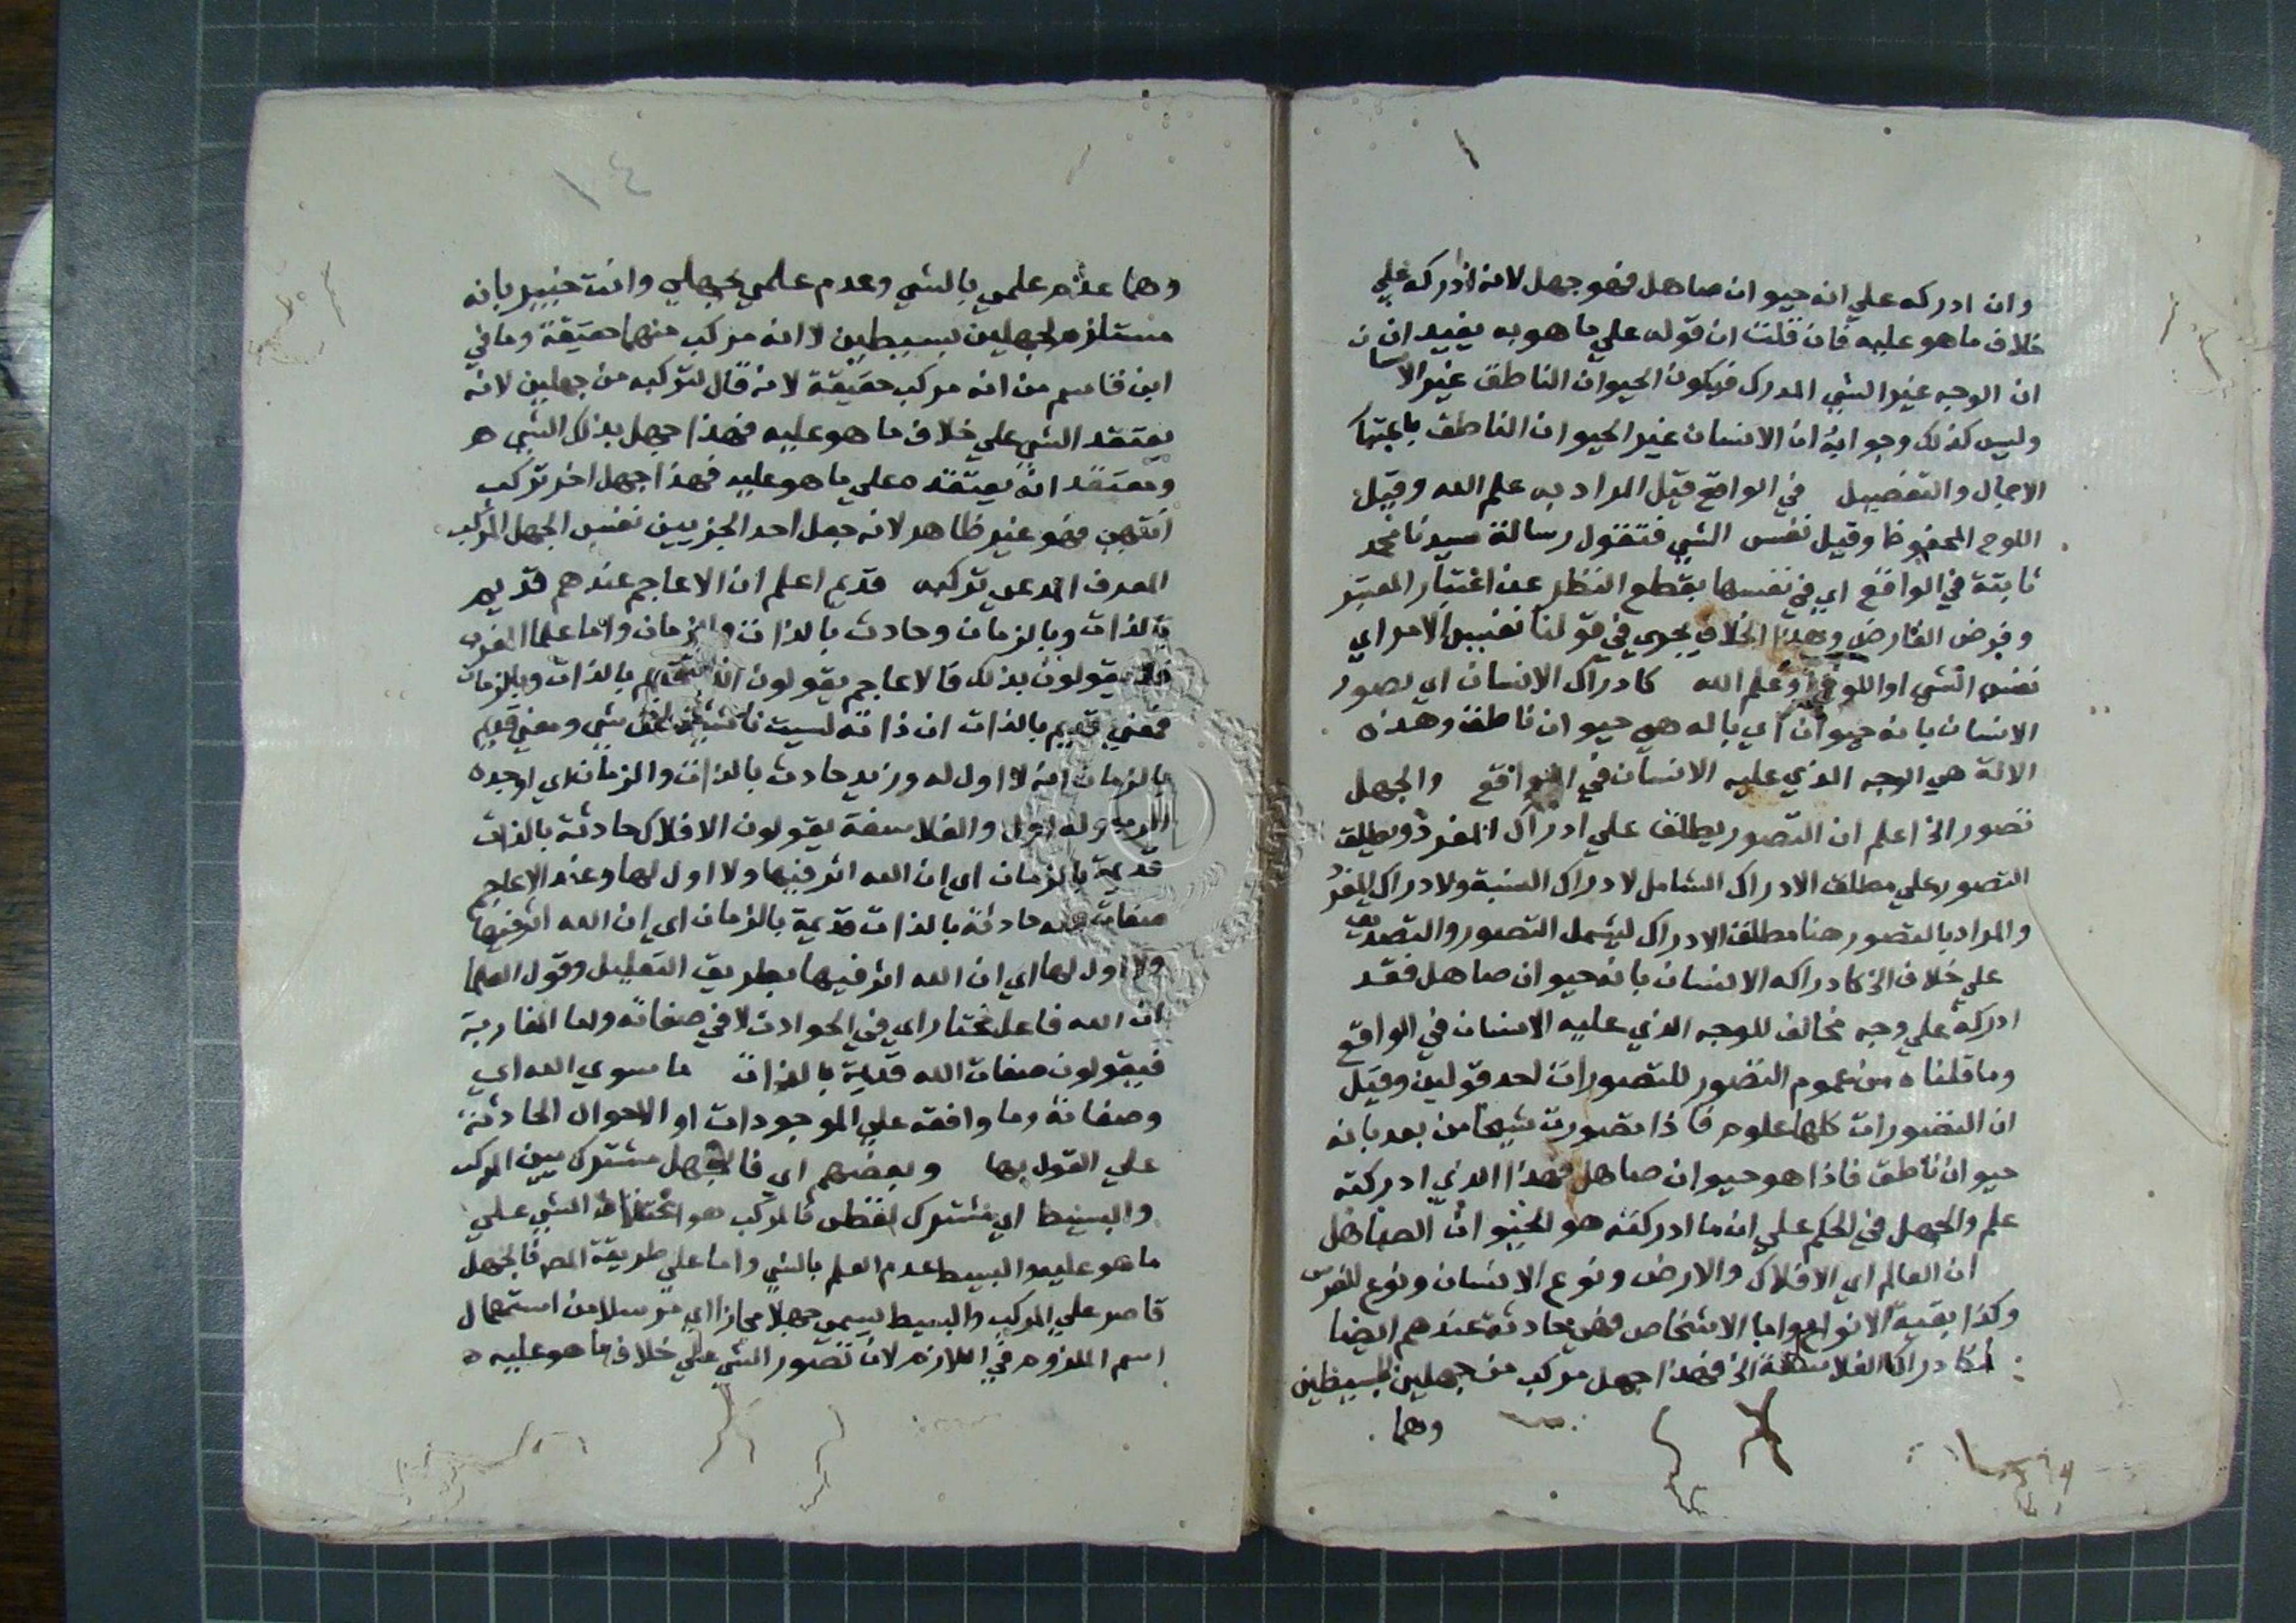 وان ادركه علي انه حيوان صاهل فهو جهل لانه ادركه علي
خلاف ما هو عليه فان قلت ان قوله علي ما هو به يفيد ان
ان الوجه غير الشي المدرك فيكون الحيوان الناطق غير الانسان
وليس كذلك وجوابه ان الانسان غير الحيوان الناطق باعتبار
الاجمال والتفصيل في الواقع قيل المراد به علم الله وقيل
اللوح المحفوظ وقيل نفس الشي فتقول رسالة سيدنا محمد
ثابتة في الواقع اي في نفسها بقطع النظر عن اعتبار المعتبر
وفرض الفارض وهذا الخلاف يجري في قولنا نفس الامر اي
نفس الشي او اللوح او علم الله كادراك الانسان اي تصور
الانسان بانه حيوان اي باله هي حيوان ناطق وهذه
الالة هي الوجه الذي عليه الانسان في الواقع والجهل
تصور الخ اعلم ان التصور يطلق علي ادراك المفرد ويطلق
التصور علي مطلق الادراك الشامل لادراك النسبة ولادراك المفرد
والمراد بالتصور هنا مطلق الادراك ليشمل التصور والتصديق
علي خلاف الخ كادراكه الانسان بانه حيوان صاهل فقد
ادركه علي وجه مخالف للوجه الذي عليه الانسان في الواقع
وما قلناه من عموم التصور للتصورات احد قولين وقيل
ان التصورات كلها علوم فاذا تصورت شبحا من بعد بانه
حيوان ناطق فاذا هو حيوان صاهل فهذا الذي ادركته
علم والجهل في الحكم علي ان ما ادركته هو الحيوان الصاهل
ان العالم اي الافلاك والارض ونوع الانسان ونوع الفرس
وكذا بقية الانواع واما الاشخاص فهي حادثة عندهم ايضا
كادراك الفلاسفة الخ فهذا جهل مركب من جهلين بسيطين
وهما
١٤
وهما عدم علمي بالشي وعدم علمي بجهلي وانت خبير بانه
مستلزم لجهلين بسيطين لا انه مركب منهما حقيقة وما في
ابن قاسم من انه مركب حقيقة لانه قال لتركبه من جهلين لانه
يعتقد الشي علي خلاف ما هو عليه فهذا جهل بذلك الشي
ويعتقد انه يعتقده علي ما هو عليه فهذا جهل اخر تركب
انتهي فهو غير ظاهر لانه جعل احد الجزيين نفس الجهل المركب
المعرف المدعي تركبه قديم اعلم ان الاعاجم عندهم قديم
بالذات وبالزمان وحادث بالذات والزمان واما علما
يقولون بذلك فالاعاجم يقولون الله قديم بالذات وبالزمان
فمعني قديم بالذات ان ذاته ليست ناشئة عن شي ومعني قديم
بالزمان انه لا اول له وزيد حادث بالذات والزمان اي اوجده
الله وله اول والفلاسفة يقولون الافلاك حادثة بالذات
قديمة بالزمان اي ان الله اثر فيها ولا اول لها وعند الاعاجم
صفات الله حادثة بالذات قديمة بالزمان اي ان الله اثر فيها
ولا اول لها اي ان الله اثر فيها بطريق التعليل وقول العلما
ان الله فاعل مختار اي في الحوادث لا في صفاته واما المغاربة
فيقولون صفات الله قديمة بالذات ما سوي الله اي
وصفاته وما وافقه علي الموجودات او الاحوال الحادثة
علي القول بها وبعضهم اي فالجهل مشترك بين المركب
والبسيط اي مشترك لفظي فالمركب هو اعتقاد الشي علي
ما هو عليه والبسيط عدم العلم بالشي واما علي طريقة المص فالجهل
قاصر علي المركب والبسيط يسمي جهلا مجازا اي مرسلا من استعمال
اسم الملزوم في اللازم لان تصور الشي علي خلاف ما هو عليه